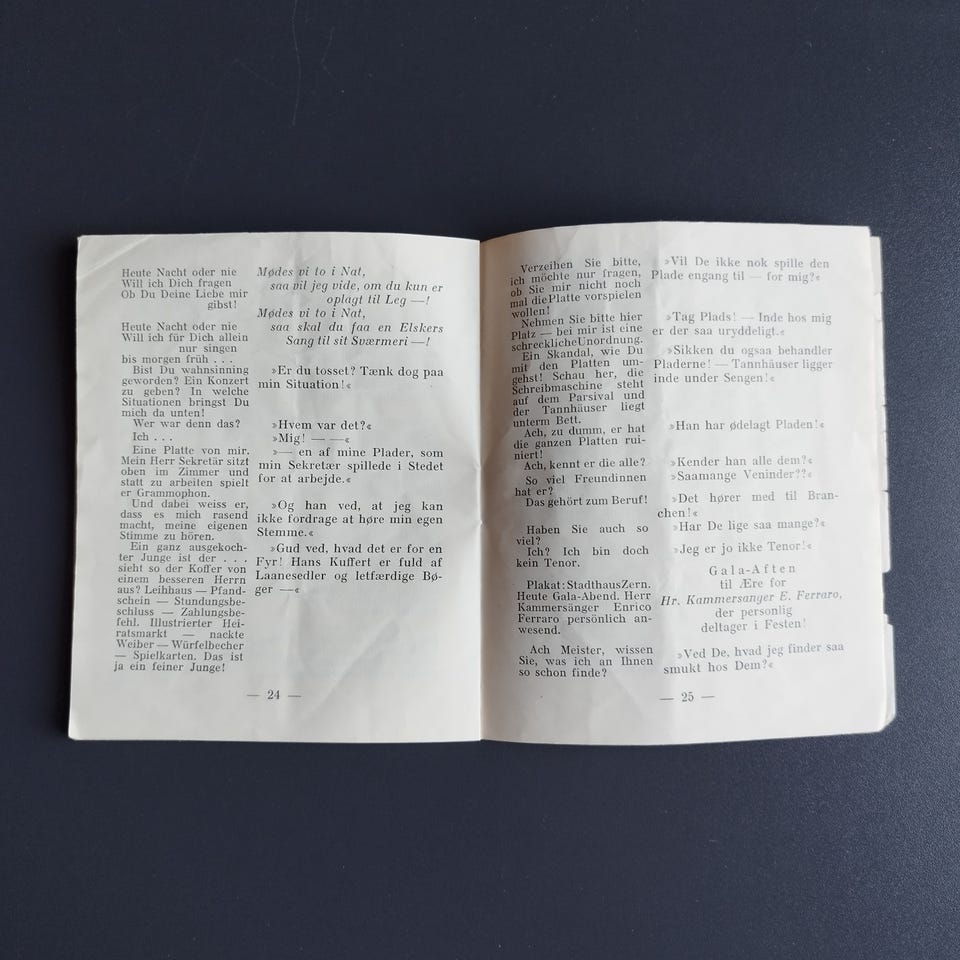 Heute Nacht oder nie
Will ich Dich fragen
Ob Du Deine Liebe mir
gibst!
Heute Nacht oder nie
Will ich für Dich allein
nur singen
bis morgen früh . . .
Bist Du wahnsinning
geworden? Ein Konzert
zu geben? In welche
Situationen bringst Du
mich da unten!
Wer war denn das?
Ich . . .
Eine Platte von mir.
Mein Herr Sekretär sitzt
oben im Zimmer und
statt zu arbeiten spielt
er Grammophon.
Und dabei weiss er,
dass es mich rasend
macht, meine eigenen
Stimme zu hören.
Ein ganz ausgekoch-
ter Junge ist der . . .
sieht so der Koffer von
einem besseren Herrn
aus? Leihhaus — Pfand-
schein — Stundungsbe-
schluss — Zahlungsbe-
fehl. Illustrierter Hei-
ratsmarkt — nackte
Weiber — Würfelbecher
— Spielkarten. Das ist
ja ein feiner Junge!
Mødes vi to i Nat,
saa vil jeg vide, om du kun er
oplagt til Leg —!
Mødes vi to i Nat,
saa skal du faa en Elskers
Sang til sit Sværmeri —!
»Er du tosset? Tænk dog paa
min Situation!«
»Hvem var det?«
»Mig! — —«
»— en af mine Plader, som
min Sekretær spillede i Stedet
for at arbejde.«
»Og han ved, at jeg kan
ikke fordrage at høre min egen
Stemme.«
»Gud ved, hvad det er for en
Fyr! Hans Kuffert er fuld af
Laanesedler og letfærdige Bø-
ger —«
— 24 —
Verzeihen Sie bitte,
ich möchte nur fragen,
ob Sie mir nicht noch
mal die Platte vorspielen
wollen!
Nehmen Sie bitte hier
Platz — bei mir ist eine
schreckliche Unordnung.
Ein Skandal, wie Du
mit den Platten um-
gehst! Schau her, die
Schreibmaschine steht
auf dem Parsival und
der Tannhäuser liegt
unterm Bett.
Ach, zu dumm, er hat
die ganzen Platten rui-
niert!
Ach, kennt er die alle?
So viel Freundinnen
hat er?
Das gehört zum Beruf!
Haben Sie auch so
viel?
Ich? Ich bin doch
kein Tenor.
Plakat: Stadthaus Zern.
Heute Gala-Abend. Herr
Kammersänger Enrico
Ferraro persönlich an-
wesend.
Ach Meister, wissen
Sie, was ich an Ihnen
so schon finde?
»Vil De ikke nok spille den
Plade engang til — for mig?«
»Tag Plads! — Inde hos mig
er der saa uryddeligt.«
»Sikken du ogsaa behandler
Pladerne! — Tannhäuser ligger
inde under Sengen!«
»Han har ødelagt Pladen!«
»Kender han alle dem?«
»Saamange Veninder??«
»Det hører med til Bran-
chen!«
»Har De lige saa mange?«
»Jeg er jo ikke Tenor!«
Gala-Aften
til Ære for
Hr. Kammersanger E. Ferraro,
der personlig
deltager i Festen!
»Ved De, hvad jeg finder saa
smukt hos Dem?«
— 25 —